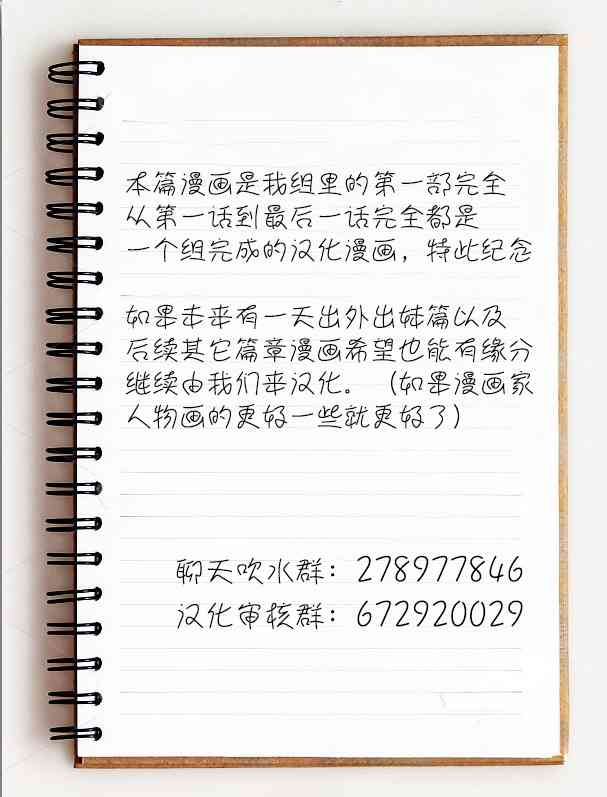 本篇漫画是我组里的第一部完全
从第一话到最后一话完全都是
一个组完成的汉化漫画，特此纪念
如果未来有一天出外出妹篇以及
后续其它篇章漫画希望也能有缘分
继续由我们来汉化。（如果漫画家
人物画的更好一些就更好了）
聊天吹水群：278977846
汉化审核群：672920029